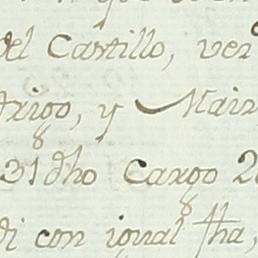 del Castillo, ver
trigo, y Mair
31 dho Cargo 2
di con igual fha,